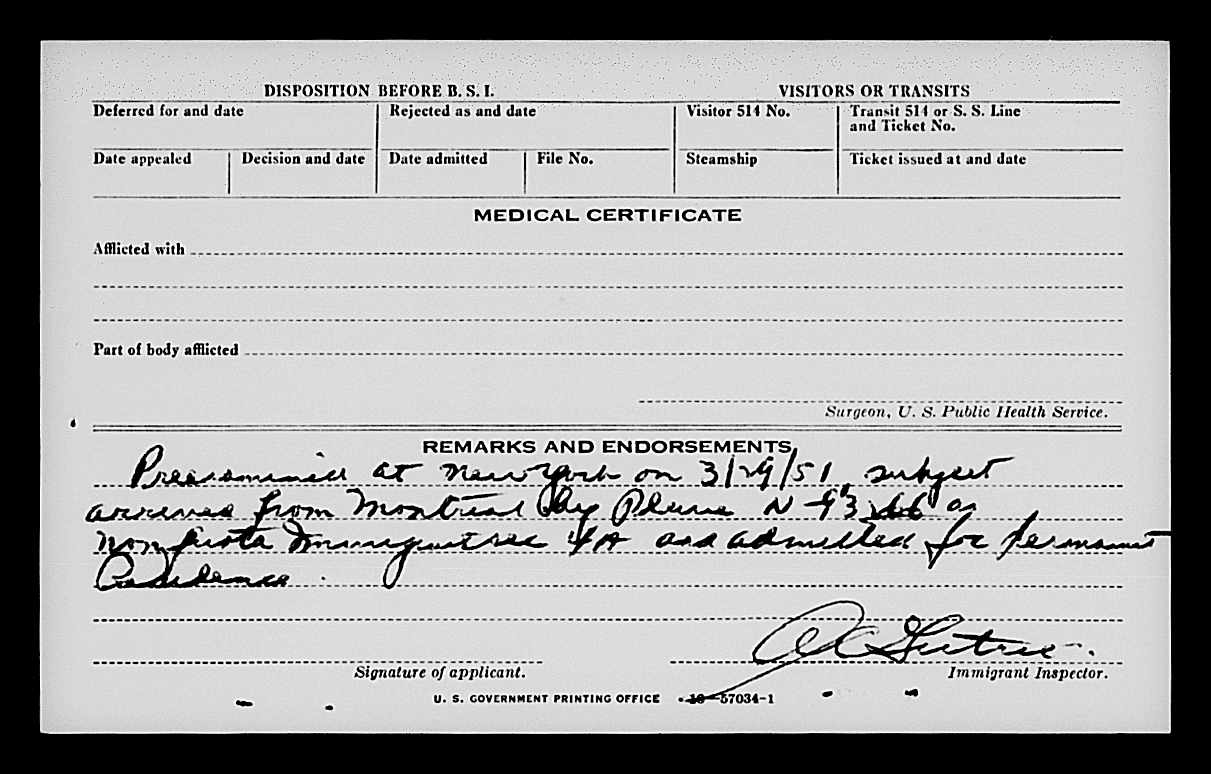 DISPOSITION BEFORE B. S. I.
VISITORS OR TRANSITS
Deferred for and date
Rejected as and date
Visitor 514 No.
Transit 514 or S. S. Line
and Ticket No.
Date appealed
Decision and date
Date admitted
File No.
Steamship
Ticket issued at and date
MEDICAL CERTIFICATE
Afflicted with
Part of body afflicted
Surgeon, U. S. Public Health Service.
REMARKS AND ENDORSEMENTS
Preexamined at New York on 3/29/51, subject
arrived from Montreal by Plane N-93 as
Nonquota Immigrant 4A and admitted for permanent
Residence.
Signature of applicant.
Immigrant Inspector.
U. S. GOVERNMENT PRINTING OFFICE 16—57034-1